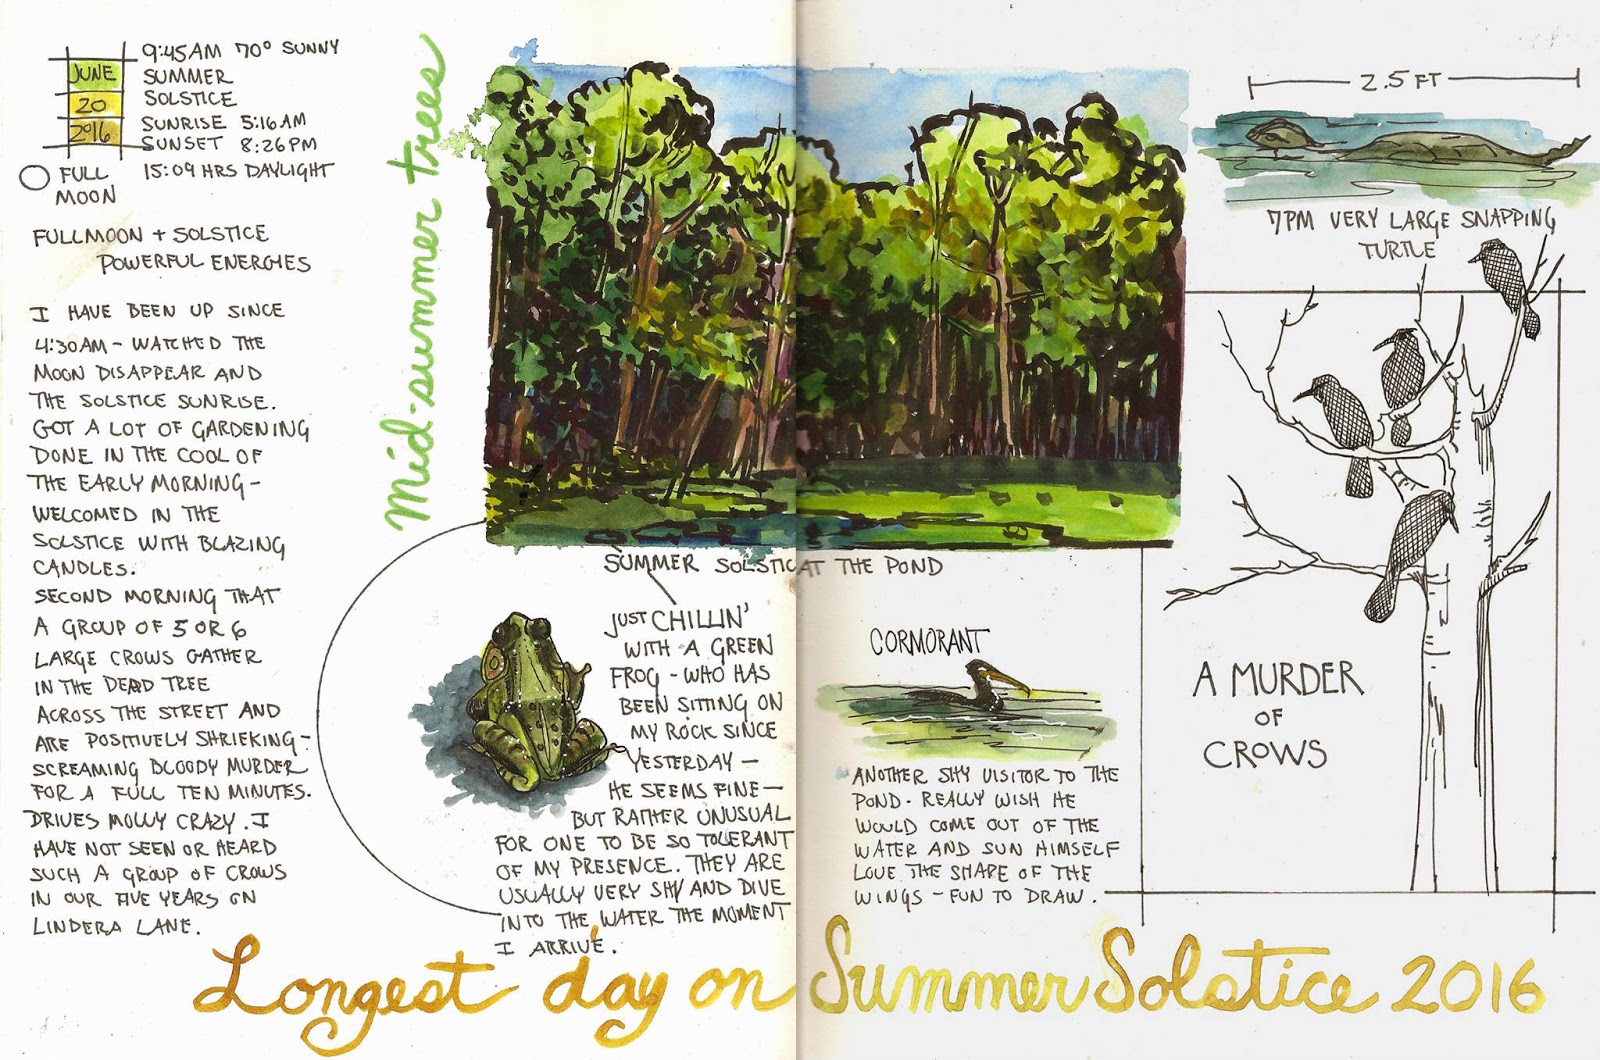 JUNE
20
2016
9:45AM 70° SUNNY
SUMMER
SOLSTICE
SUNRISE 5:16AM
SUNSET 8:26PM
15:09 HRS DAYLIGHT
FULL
MOON
FULLMOON + SOLSTICE
POWERFUL ENERGIES
I HAVE BEEN UP SINCE
4:30AM - WATCHED THE
MOON DISAPPEAR AND
THE SOLSTICE SUNRISE.
GOT A LOT OF GARDENING
DONE IN THE COOL OF
THE EARLY MORNING -
WELCOMED IN THE
SOLSTICE WITH BLAZING
CANDLES.
SECOND MORNING THAT
A GROUP OF 5 OR 6
LARGE CROWS GATHER
IN THE DEAD TREE
ACROSS THE STREET AND
ARE POSITIVELY SHRIEKING -
SCREAMING BLOODY MURDER
FOR A FULL TEN MINUTES.
DRIVES MOLLY CRAZY. I
HAVE NOT SEEN OR HEARD
SUCH A GROUP OF CROWS
IN OUR FIVE YEARS ON
LINDERA LANE.
Mid-summer trees
SUMMER SOLSTIC AT THE POND
JUST CHILLIN'
WITH A GREEN
FROG - WHO HAS
BEEN SITTING ON
MY ROCK SINCE
YESTERDAY -
HE SEEMS FINE -
BUT RATHER UNUSUAL
FOR ONE TO BE SO TOLERANT
OF MY PRESENCE. THEY ARE
USUALLY VERY SHY AND DIVE
INTO THE WATER THE MOMENT
I ARRIVE.
CORMORANT
ANOTHER SHY VISITOR TO THE
POND. REALLY WISH HE
WOULD COME OUT OF THE
WATER AND SUN HIMSELF
LOVE THE SHAPE OF THE
WINGS - FUN TO DRAW.
2.5 FT
7PM VERY LARGE SNAPPING
TURTLE
A MURDER
OF
CROWS
Longest day on Summer Solstice 2016